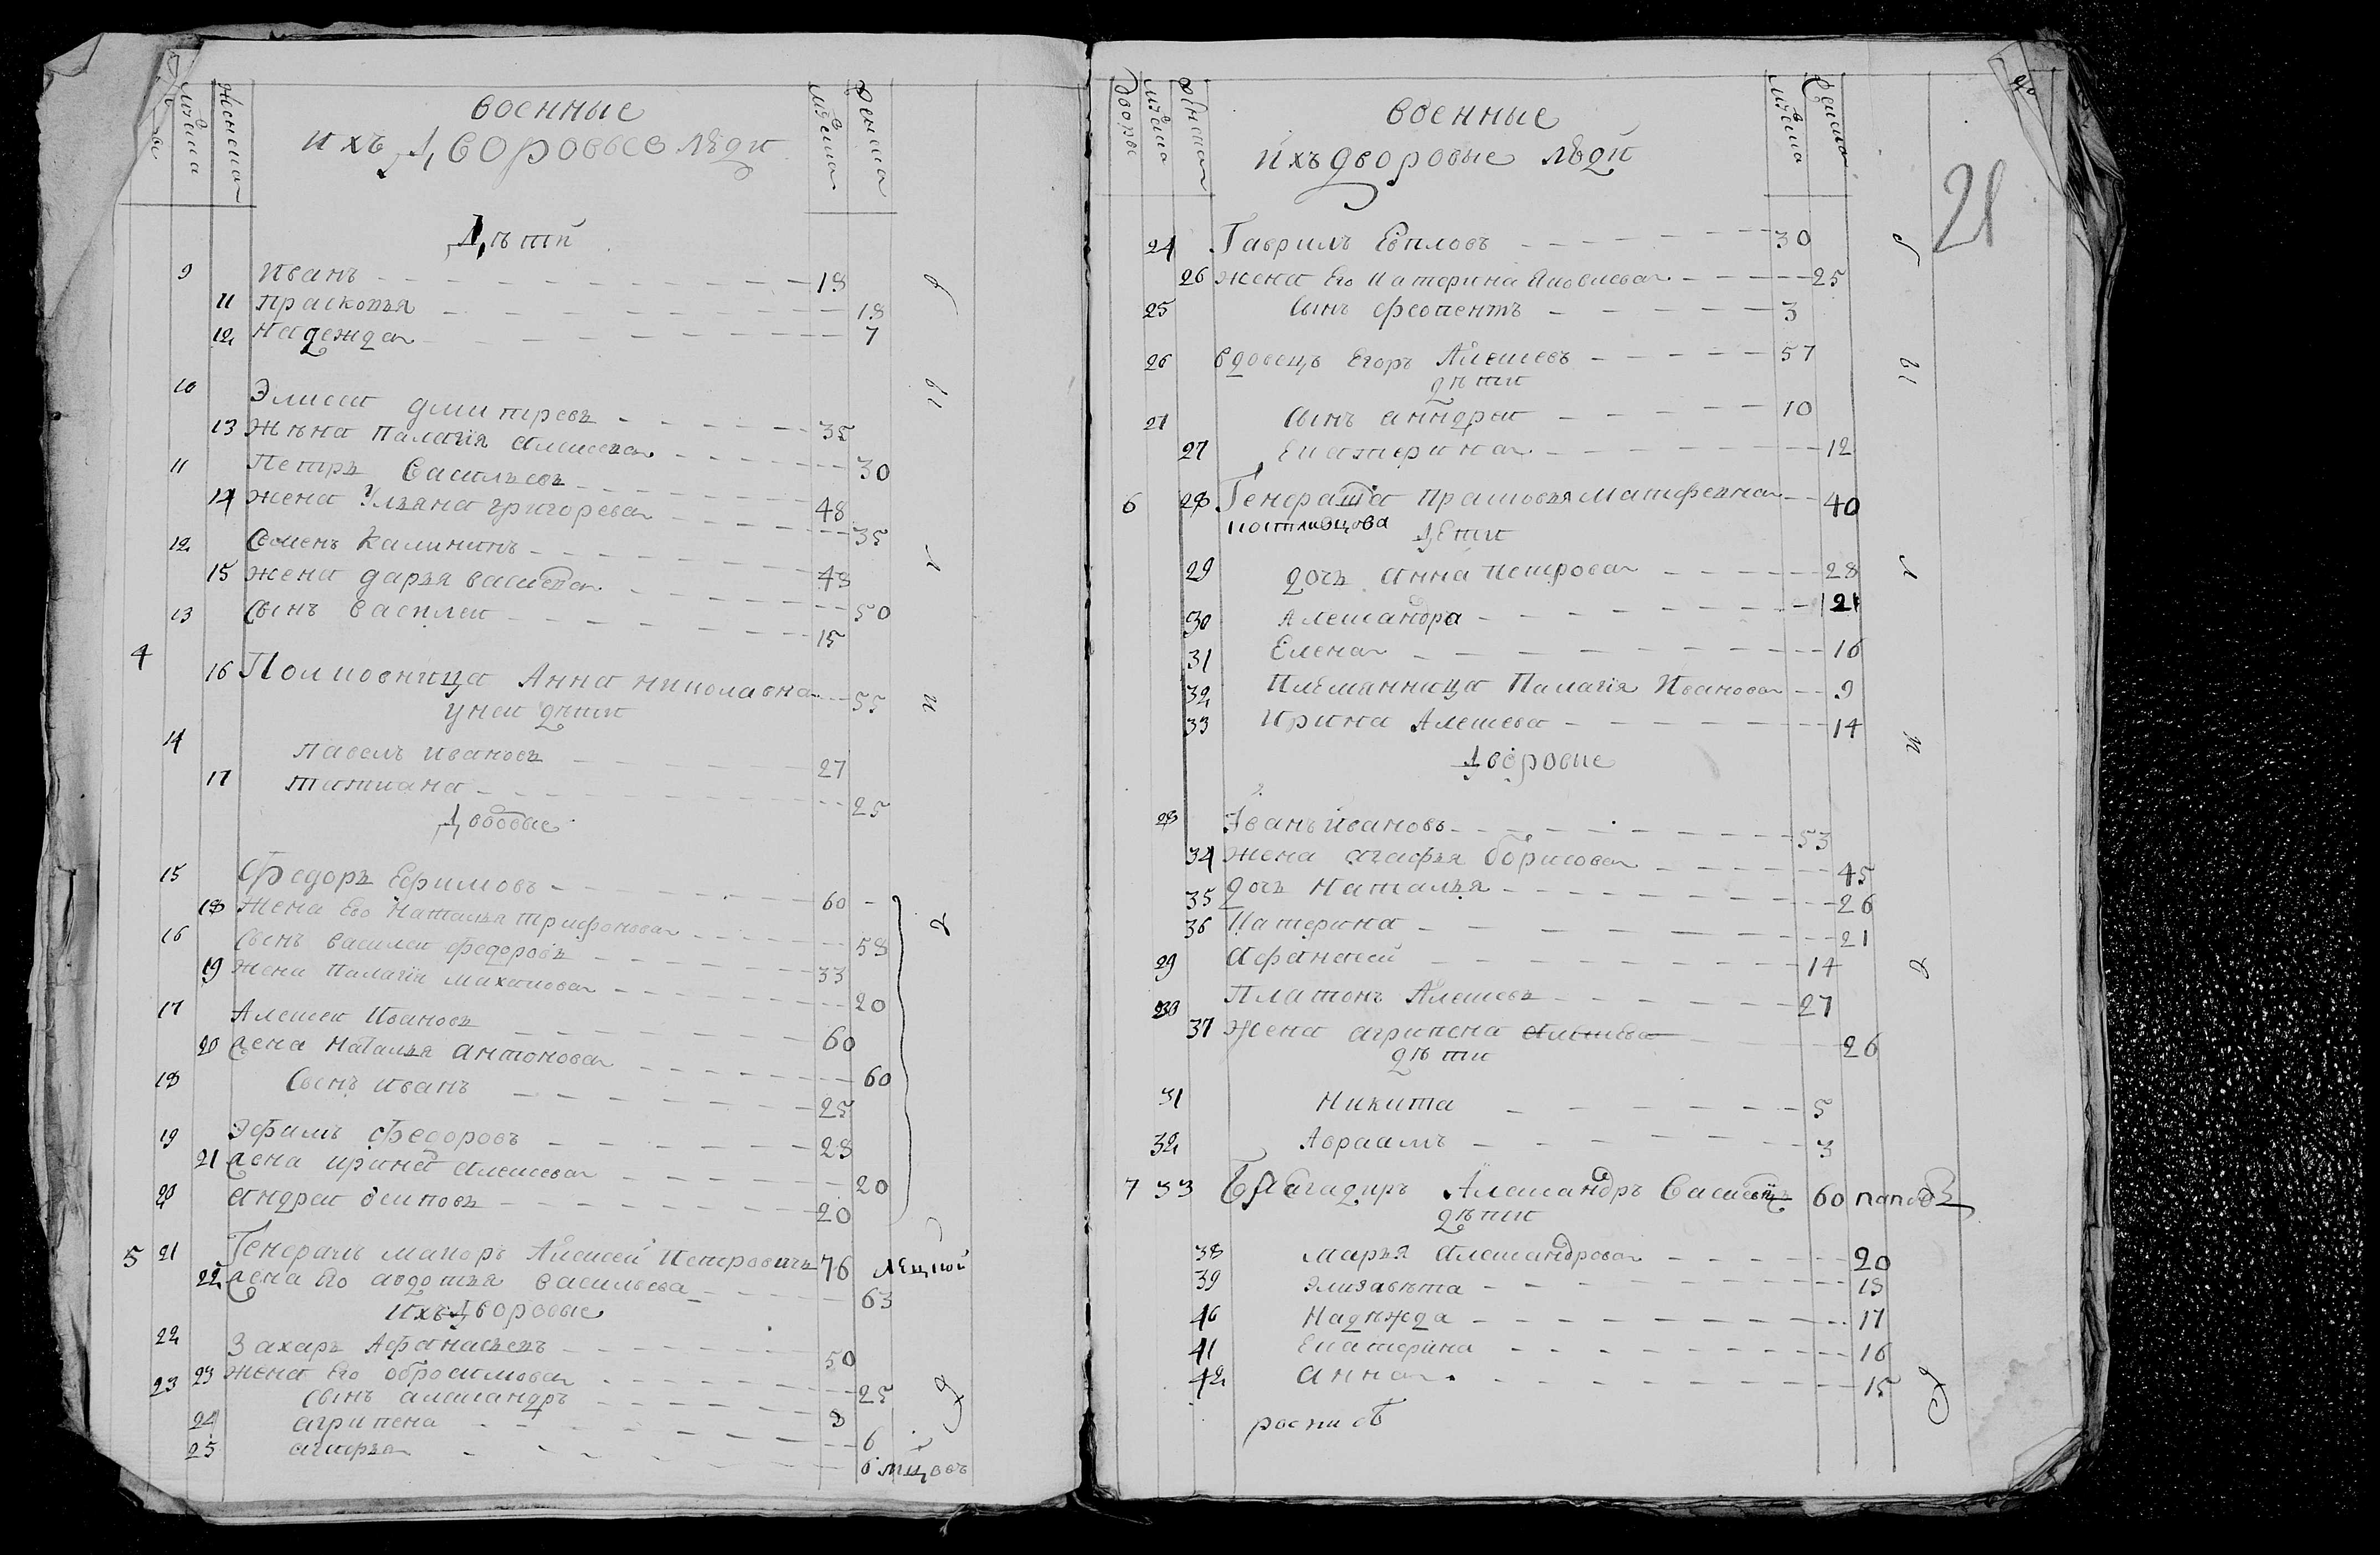 мужеска
женска
военные
ихъ Дворовыѳ лѣди
мужеска
женска
Дѣти
9 Иванъ 18
11 Прасковья 18
12 Надежда 7
10 Элисеи дмитревъ 35
13 Жѣна Палагия алексева 30
11 Петръ Васильевъ 48
14 жена Ульяна григорева 35
12 Семенъ Калининъ 48
15 жена дарья василева 50
13 Сынъ василеи 15
4 16 Полковница Анна николавна 55
унеи дѣти
14 павелъ ивановъ 27
17 татиана 25
Двовые
15 Федоръ Ефимовъ 60
18 жена Его Наталья трифонова 58
16 сынъ василеи федоровъ 33
19 жена Палагия 20
17 Алексеи Ивановъ 60
20 жена Наталья антонова 60
18 Сынъ иванъ 25
19 Эфимъ федоровъ 28
21 жена ирина алексева 20
20 андреи осиповъ 20
5 21 Генералъ маиоръ Алексеи Петровичь 76
22 жена Его авдотья васильева 63
ихъ Дворовые
22 Захаръ Афанасьевъ 50
23 жена Его 25
23 сынъ александръ 8
24 агрипена 6
25 агафья 6
дворы
мужеска
женска
военные
ихъ дворовые лѣди
мужеска
женска
21
24 Гаврилъ Евпловъ 30
26 жена Его Катерина Яковлева 25
25 сынъ феопентъ 3
26 вдовецъ Егоръ Алексевъ 57
дѣти
27 сынъ андреи 10
27 Екатерина 12
6 28 Генералша Прасковья Матфевна 40
Костливцова
Дети
29 дочь Анна Петрова 28
30 Александра 21
31 Елена 16
32 Племянница Палагия Иванова 9
33 ирина Алексева 14
Дворовые
28 Иванъ Ивановъ 53
34 жена агафья борисова 45
35 дочь Наталья 26
36 Катерина 21
29 Афанасеи 14
30 Платонъ Алексевъ 27
37 Жена агрипена 26
дѣти
31 Никита 5
32 Авраамъ 3
7 33 Брагадиръ Александръ Василевичь 60 поповъ
дѣти
38 марья александрова 20
39 элизавѣта 18
40 Надѣжда 17
41 Екатерина 16
42 анна 15